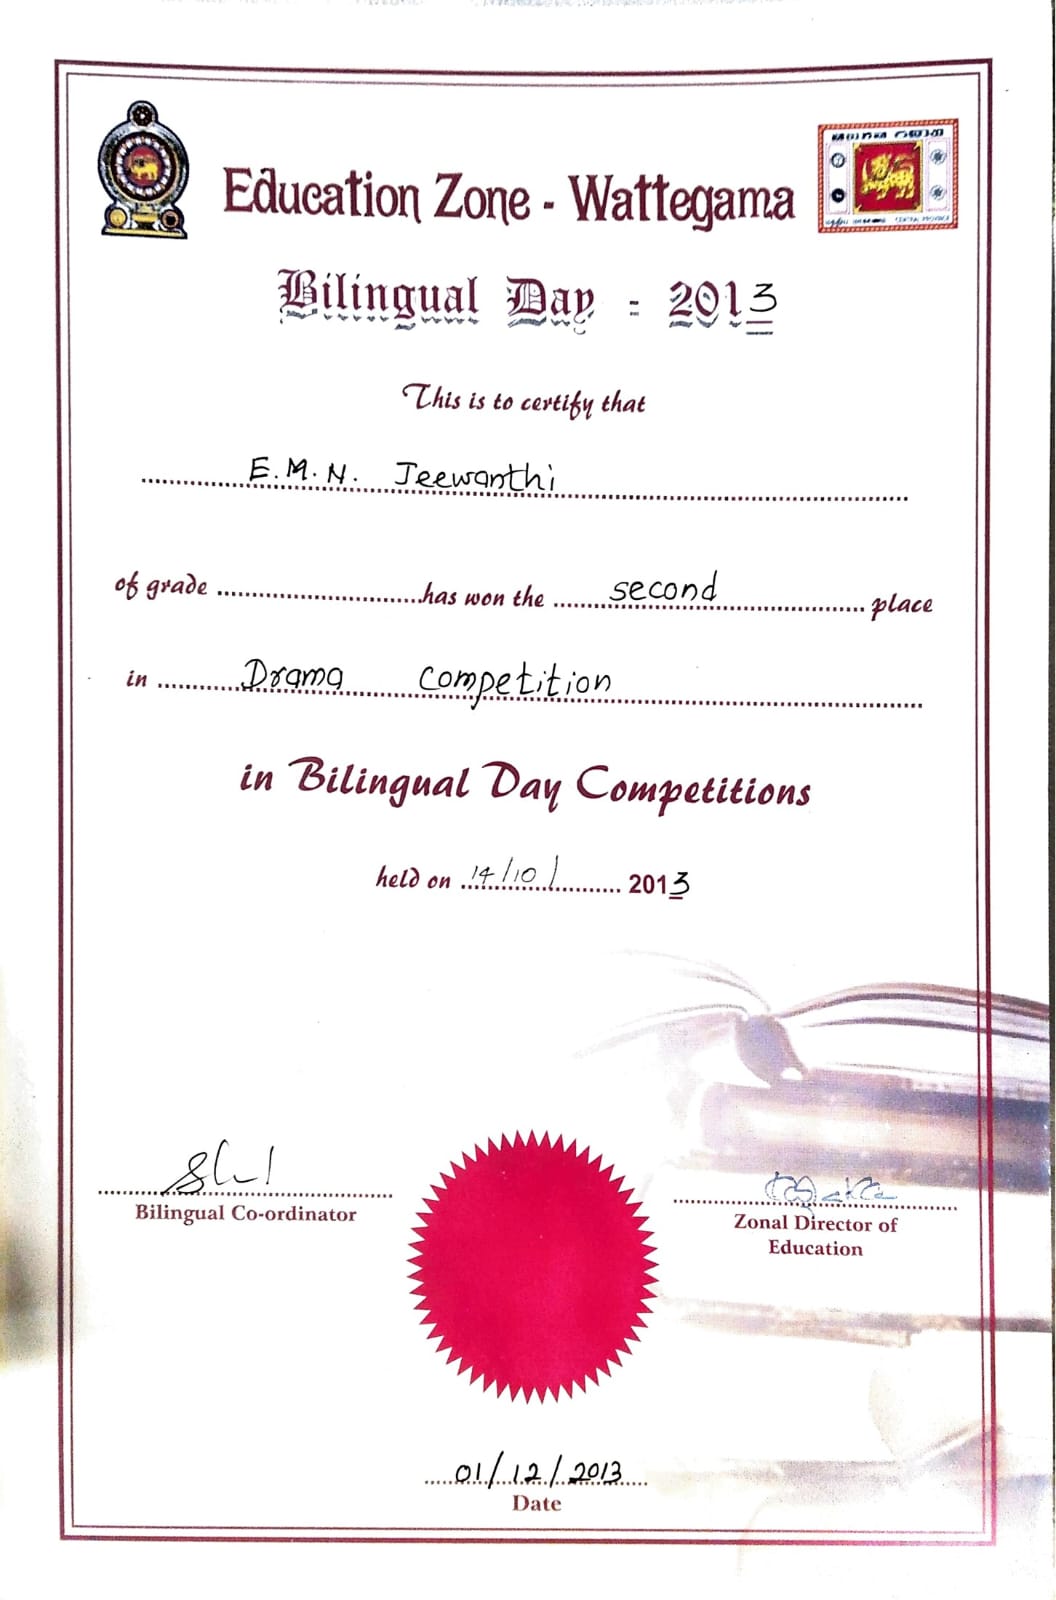 Education Zone - Wattegama
Bilingual Day : 2013
This is to certify that
E.M.N. Jeewanthi
of grade ........................has won the ........second........ place
in ........Drama competition........
in Bilingual Day Competitions
held on 14/10/ ........ 2013
Bilingual Co-ordinator
Zonal Director of
Education
01/12/2013
Date